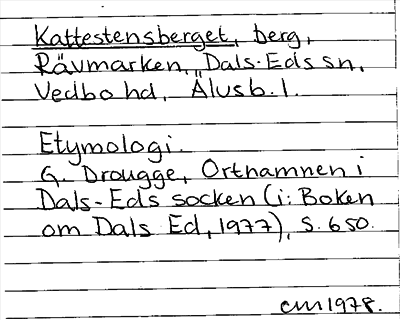 Kattestensberget, berg,
Rävmarken, Dals-Eds sn,
Vedbo hd, Älvsb. l.
Etymologi.
G. Drougge, Ortnamnen i
Dals-Eds socken (i: Boken
om Dals Ed, 1977), s. 650.
cm 1978.